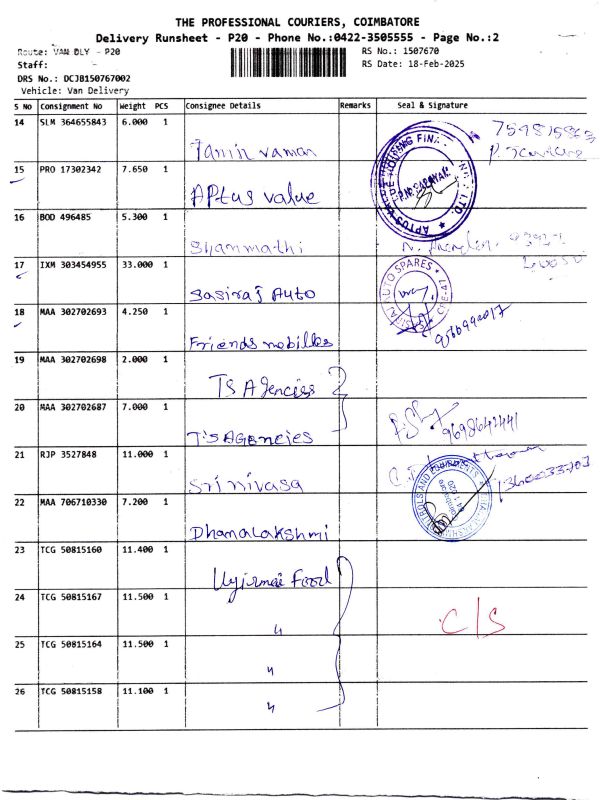 THE PROFESSIONAL COURIERS, COIMBATORE
Delivery Runsheet - P20 - Phone No.:0422-3505555 - Page No.:2
Route: VAN DLY - P20
RS No.: 1507670
Staff: -
RS Date: 18-Feb-2025
DRS No.: DCJB150767002
Vehicle: Van Delivery
S No Consignment No Weight PCS Consignee Details Remarks Seal & Signature
14 SLM 364655843 6.000 1
15 PRO 17302342 7.650 1 APtus value
16 BOD 496485 5.300 1 Shanmathi
17 IXM 303454955 33.000 1 Sasiraj Auto
18 MAA 302702693 4.250 1 Friends mobilles
19 MAA 302702698 2.000 1 TS Agencies
20 MAA 302702687 7.000 1 T'S AGEncies 9698642441
21 RJP 3527848 11.000 1 Srinivasa
22 MAA 706710330 7.200 1 DhanaLakshmi
23 TCG 50815160 11.400 1 Uyirmai Food
24 TCG 50815167 11.500 1 〃 C/S
25 TCG 50815164 11.500 1 〃
26 TCG 50815158 11.100 1 〃